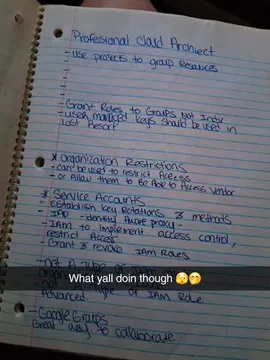 Profesional Cloud Archiect
- use projects to group Resources
- Grant Roles to Groups Not Indv
- user managed keys should be used in
last Resort
* Organization Restrictions
- can be used to restrict Access
- or Allow them to Be Able to Access Vendor
* Service Accounts
- Establish Key Rotations & methods
- IAP - identity Aware proxy -
- IAM to implement access control,
restrict Access
- Grant & revoke IAM Roles
What yall doin though 🫣🤭
- not A type of
Advanced Type of IAM Role
- Google Groups
Great way to collaborate